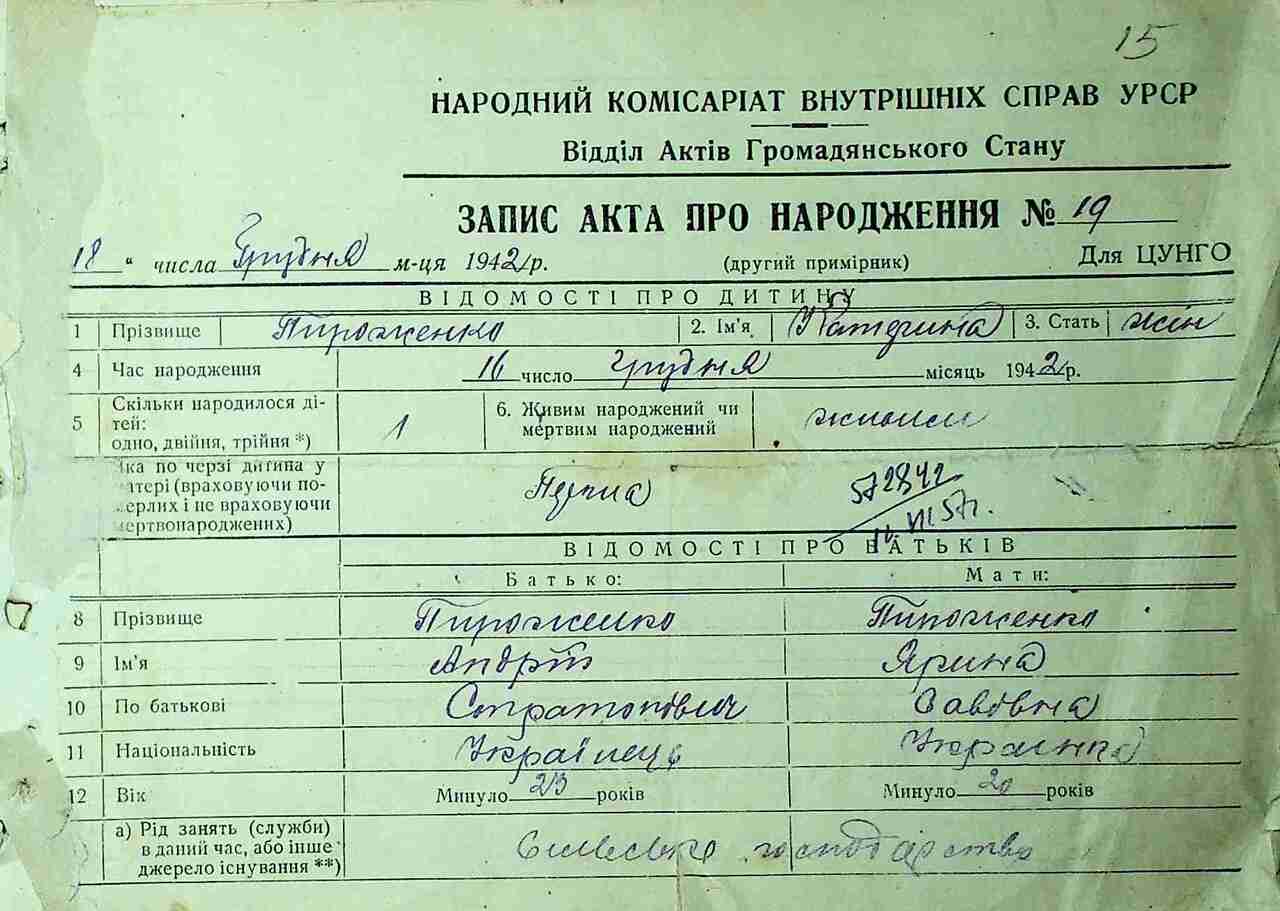 15
НАРОДНИЙ КОМІСАРІАТ ВНУТРІШНІХ СПРАВ УРСР
Відділ Актів Громадянського Стану
ЗАПИС АКТА ПРО НАРОДЖЕННЯ № 19
18 " числа Грудня м-ця 1942 р.
(другий примірник)
Для ЦУНГО
ВІДОМОСТІ ПРО ДИТИНУ
1 Прізвище Пироженко 2. Ім'я Катерина 3. Стать жін
4 Час народження 16 число грудня місяць 1942 р.
5 Скільки народилося ді-
тей:
одно, двійня, трійня *) 1
6. Живим народжений чи
мертвим народжений живим
яка по черзі дитина у
атері (враховуючи по-
ерлих і не враховуючи
мертвонароджених) Перша
572842
VII 57г.
ВІДОМОСТІ ПРО БАТЬКІВ
Батько: Мати:
8 Прізвище Пироженко Пироженко
9 Ім'я Андрій Ярина
10 По батькові Савівна
11 Національність Українець Українка
12 Вік Минуло 23 років Минуло 20 років
а) Рід занять (служби)
в даний час, або інше
джерело існування **) Сільське господарство